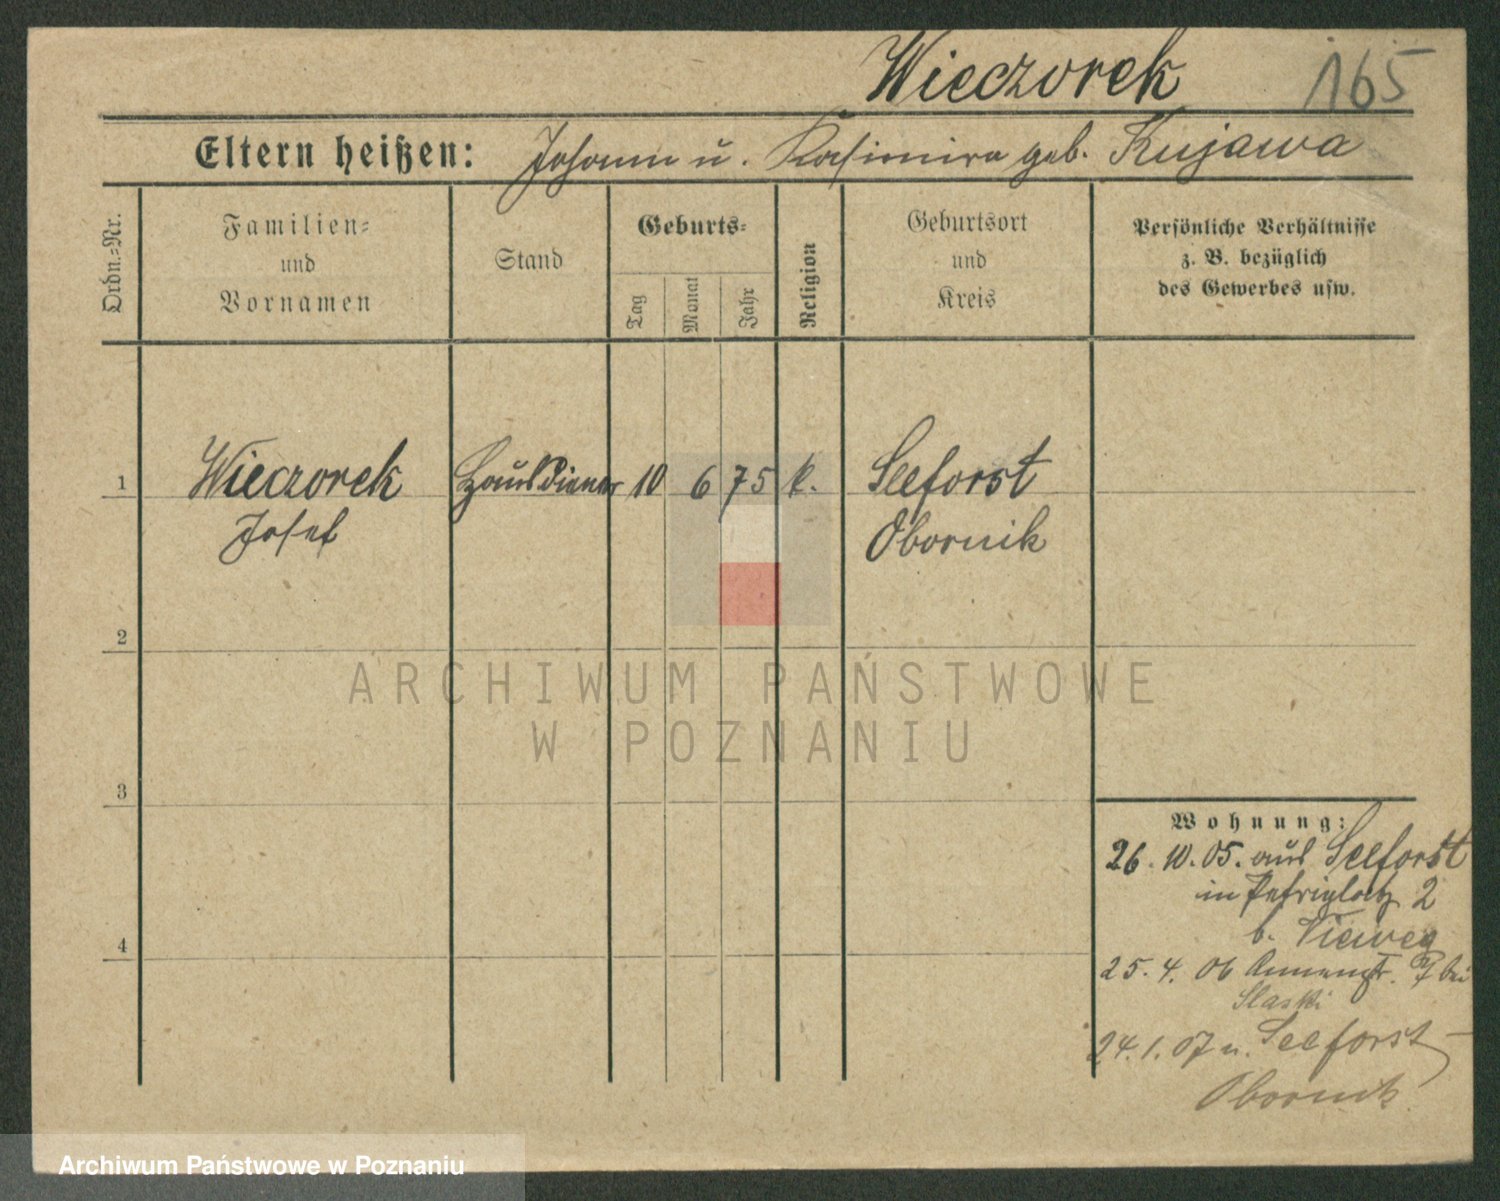 Wieczorek 165
Eltern heißen: Johann u. Kasimira geb. Kujawa
Ordn.=Nr.
Familien=
und
Vornamen
Stand
Geburts=
Tag
Monat
Jahr
Religion
Geburtsort
und
Kreis
Persönliche Verhältnisse
z. B. bezüglich
des Gewerbes usw.
1 Wieczorek Hausdiener 10 6 75 k. Seeforst
Josef Obornik
2
3
4
ARCHIWUM PAŃSTWOWE
W POZNANIU
Wohnung:
26. 10. 05. aus Seeforst
in 2
b. Vieweg
25. 4. 06 Annenstr. 7 bei
Slaski
24. 1. 07 n. Seeforst
Obornik
Archiwum Państwowe w Poznaniu